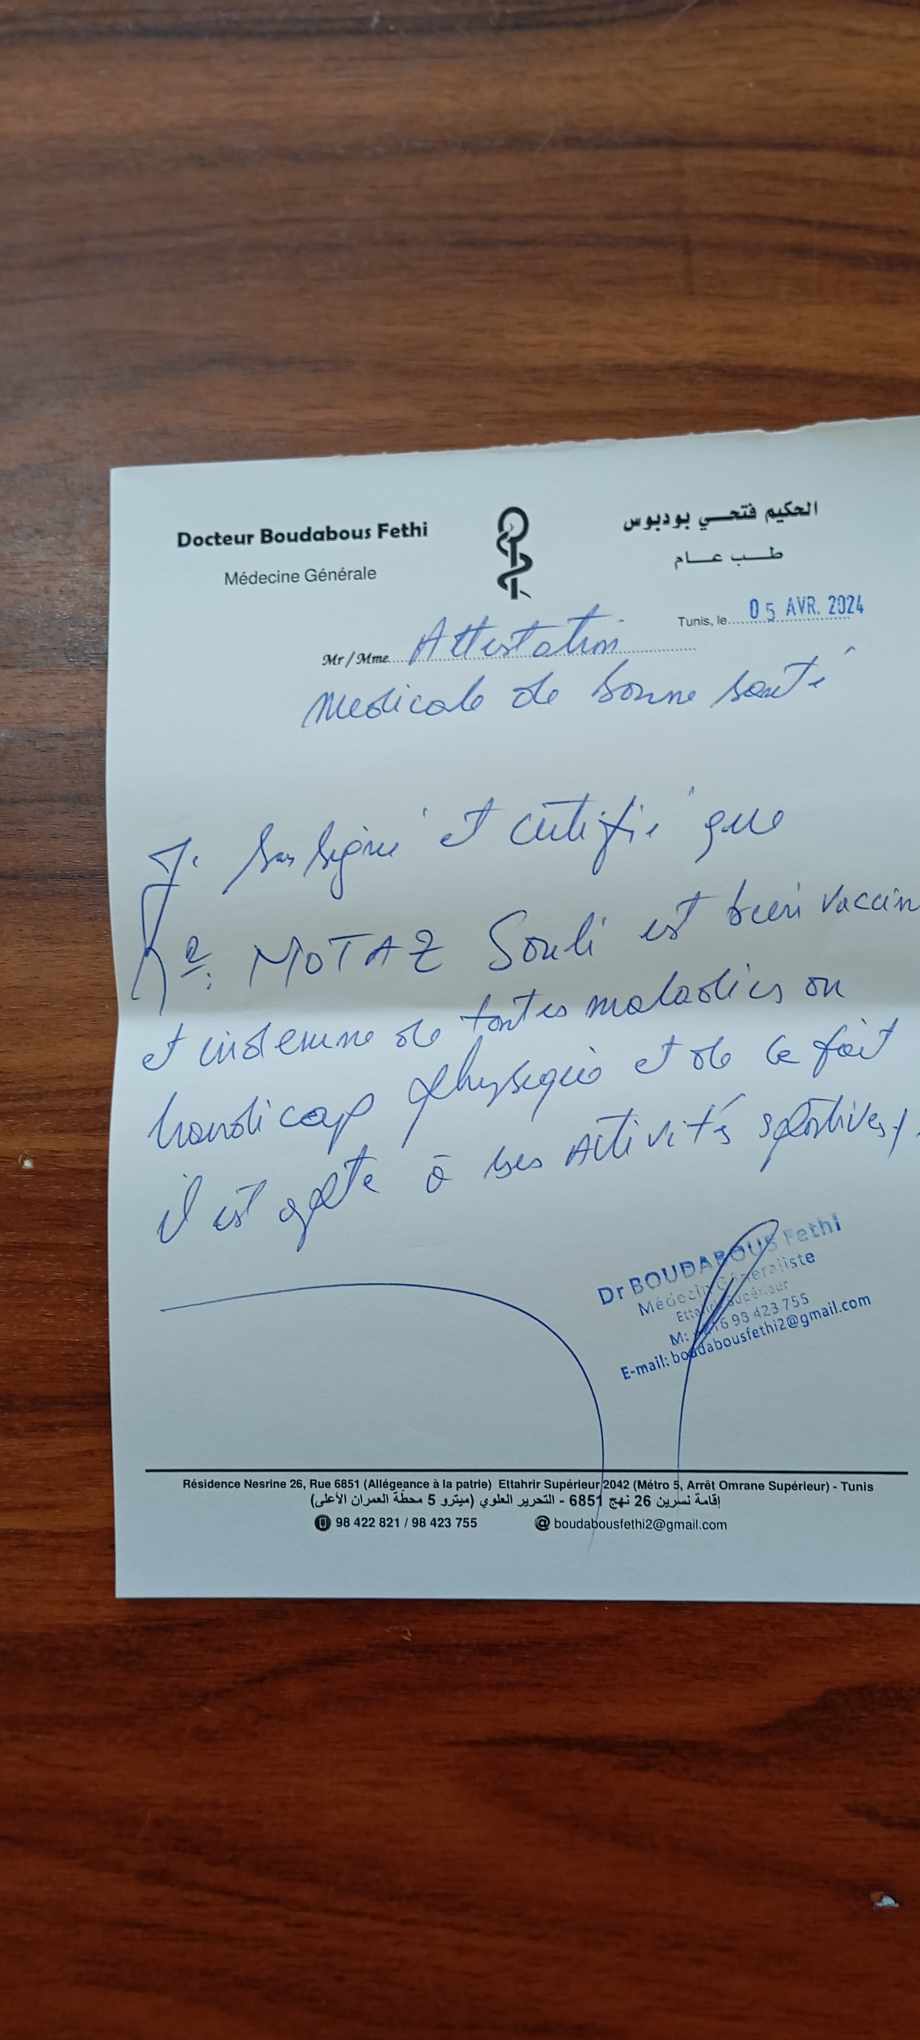 Docteur Boudabous Fethi
Médecine Générale
الحكيم فتحي بودبوس
طب عام
Tunis, le 05 AVR. 2024
Mr / Mme Attestation
medicale de bonne santé
Je sous signé et certifié que
MOTAZ Souli est bien vaccin
et indemne de toutes maladies ou
handicap physique et de ce fait
il est apte à ses activités sportives
Dr BOUDABOUS Fethi
Médecin Généraliste
Ettahrir Supérieur
M: 98 423 755
E-mail: boudabousfethi2@gmail.com
Résidence Nesrine 26, Rue 6851 (Allégeance à la patrie) Ettahrir Supérieur 2042 (Métro 5, Arrêt Omrane Supérieur) - Tunis
إقامة نسرين 26 نهج 6851 - التحرير العلوي (ميترو 5 محطة العمران الأعلى)
98 422 821 / 98 423 755
boudabousfethi2@gmail.com